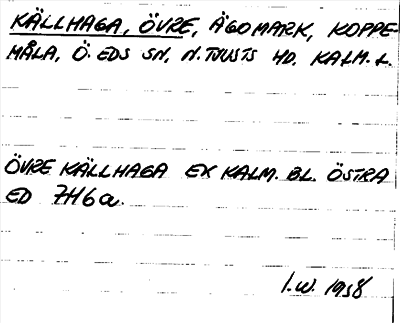 KÄLLHAGA, ÖVRE, ÄGOMARK, KOPPE-
MÅLA, Ö. EDS SN, N. TJUSTS HD, KALM. L.
ÖVRE KÄLLHAGA EX KALM. BL. ÖSTRA
ED 7H6a.
I.W. 1958